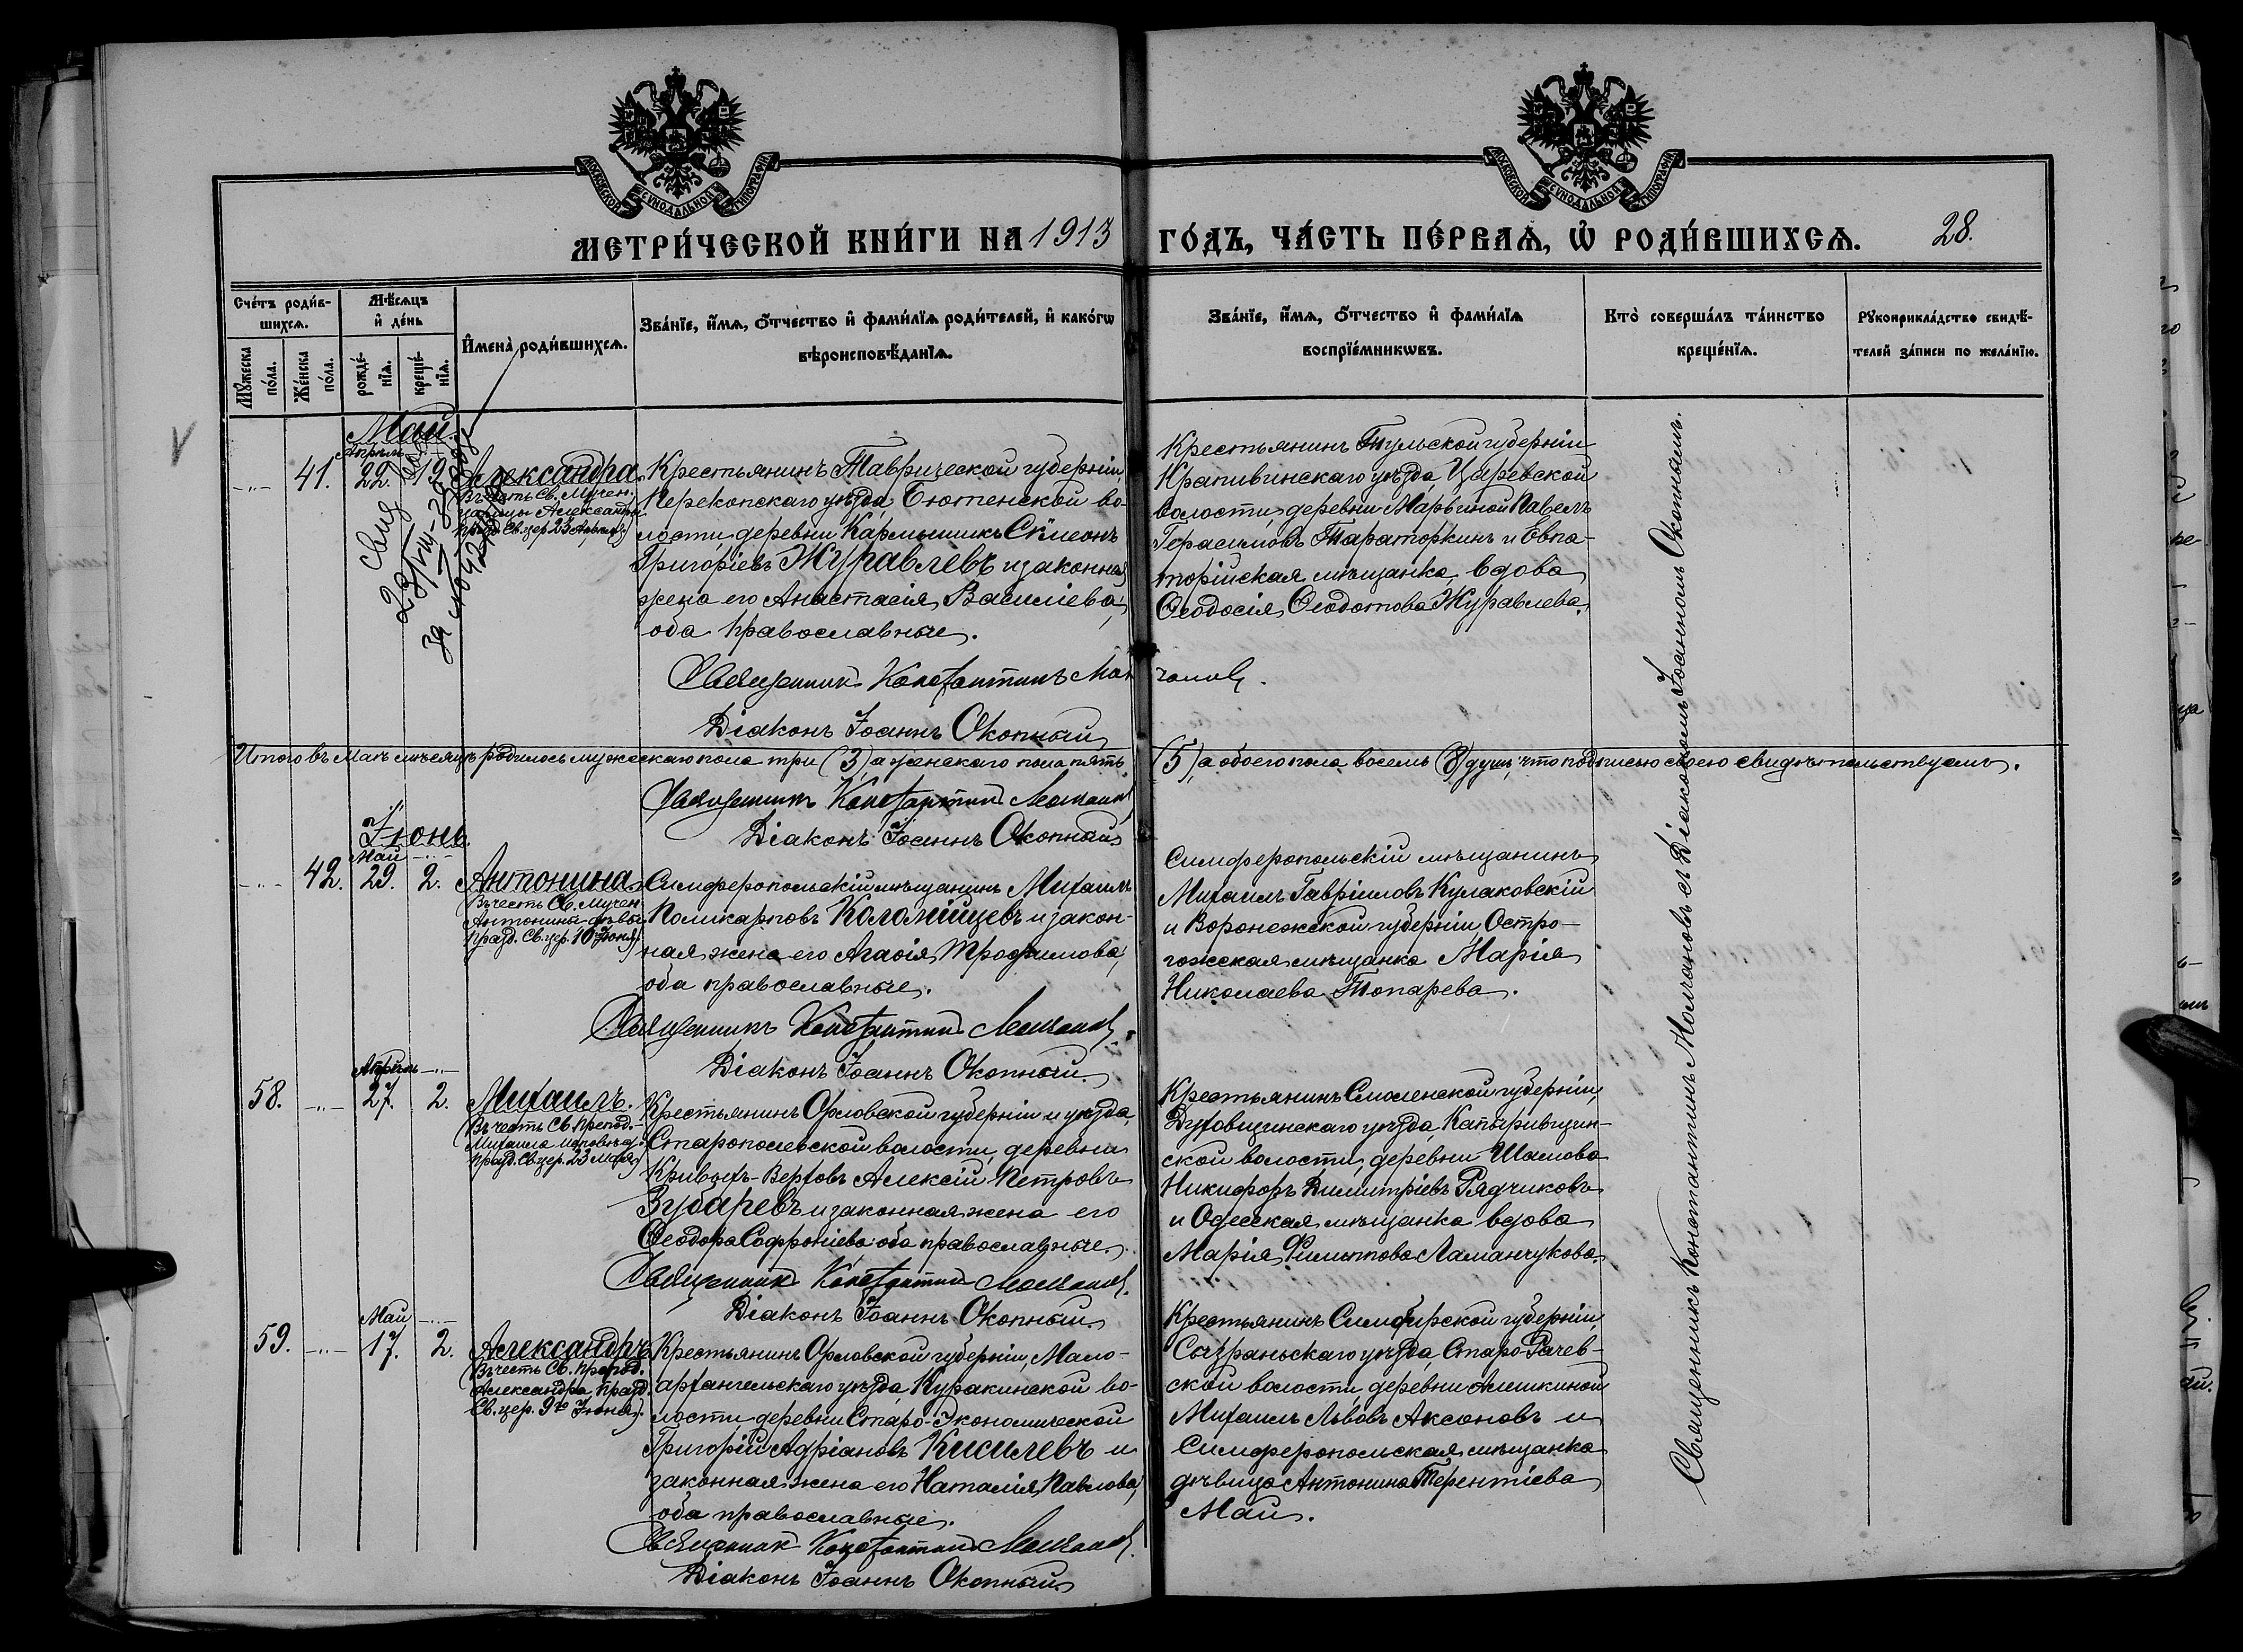 МОСКОВСКОЙ СУНОДАЛЬНОЙ ТИПОГРАФІИ
МОСКОВСКОЙ СУНОДАЛЬНОЙ ТИПОГРАФІИ
МЕТРИ́ЧЕСКОЙ КНИ́ГИ НА 1913 ГО́ДЪ, ЧА́СТЬ ПЕ́РВАѦ, Ѡ РОДИ́ВШИХСѦ. 28.
Сче́тъ роди́в-
шихсѧ.
Му́жеска
по́ла.
Же́нска
по́ла.
Мѣ́сѧцъ
и҆ де́нь
рожде́-
нїѧ.
креще́-
нїѧ.
И҆мена̀ роди́вшихсѧ.
Зва́нїе, и҆́мѧ, ѻ҆́тчество и҆ фами́лїѧ роди́телей, и҆ како́гѡ
вѣроисповѣ́данїѧ.
Зва́нїе, и҆́мѧ, ѻ҆́тчество и҆ фами́лїѧ
воспрїе́мникѡвъ.
Кто̀ соверша́лъ та́инство
креще́нїѧ.
Рукоприкла́дство свидѣ́-
телей за́писи по жела́нїю.
V
Май.
Апрѣль
41. 22. 19. Александра
(Въ честь Св. Мучен.
царицы Александры
празд. Св. цер. 23 Апрѣля)
Крестьянинъ Таврической губерніи,
Перекопскаго уѣзда Бютенской во-
лости, деревни Кармышикъ Сѵмеонъ
Григоріевъ Журавлевъ и законная
жена его Анастасія Василіева,
оба православные.
Священникъ Константинъ Молчановъ.
Діаконъ Іоаннъ Окопный
Крестьянинъ Тульской губерніи
Крапивинскаго уѣзда Царевской
волости, деревни Марьиной Павелъ
Герасимовъ Тараторкинъ и Евпа-
торійская мѣщанка, вдова
Ѳеодосія Ѳеодотова Журавлева.
Итого въ Маѣ мѣсяцѣ родилось мужескаго пола три (3), а женскаго пола пять (5), а обоего пола восемь (8) душъ, что подписью своею свидѣтельствуемъ.
Священникъ Константинъ Молчановъ
Діаконъ Іоаннъ Окопный
Іюнь.
Май
42. 29. 2. Антонина
(Въ честь Св. Мучен.
Антонины-дѣвы
празд. Св. цер. 10 Іюня)
Симферопольскій мѣщанинъ Михаилъ
Поликарповъ Коломійцевъ и закон-
ная жена его Агаѳія Трофимова,
оба православные.
Священникъ Константинъ Молчановъ.
Діаконъ Іоаннъ Окопный.
Симферопольскій мѣщанинъ
Михаилъ Гавріиловъ Кулаковскій
и Воронежской губерніи, Остро-
гожская мѣщанка Марія
Николаева Топарева.
Апрѣль
58. 27. 2. Михаилъ.
(Въ честь Св. Препод.
Михаила исповѣд.
празд. Св. цер. 23 Мая)
Крестьянинъ Орловской губерніи и уѣзда,
Старопольской волости, деревни
Кривыхъ-Верховъ Алексій Петровъ
Зубаревъ и законная жена его
Ѳеодора Софроніева оба православные
Священникъ Константинъ Молчановъ.
Діаконъ Іоаннъ Окопный.
Крестьянинъ Смоленской губерніи,
Духовщинскаго уѣзда, Капыривщин-
ской волости, деревни Шамова
Никифоръ Димитріевъ Рядчиковъ
и Одесская мѣщанка вдова
Марія Филиппова Ламанчукова.
Май
59. 17. 2. Александръ
(Въ честь Св. препод.
Александра празд.
Св. цер. 9го Іюня)
Крестьянинъ Орловской губерніи, Мало-
архангельскаго уѣзда, Куракинской во-
лости деревни Старо-Экономической
Григорій Адріановъ Кисилевъ и
законная жена его Наталія Павлова,
оба православные.
Священникъ Константинъ Молчановъ.
Діаконъ Іоаннъ Окопный.
Крестьянинъ Симбирской губерніи,
Сызраньскаго уѣзда, Старо-Рачев-
ской волости, деревни Алешкиной
Михаилъ Львовъ Аксоновъ и
Симферопольская мѣщанка
дѣвица Антонина Терентіева
Май.
Священникъ Константинъ Молчановъ съ Діакономъ Іоанномъ Окопнымъ.